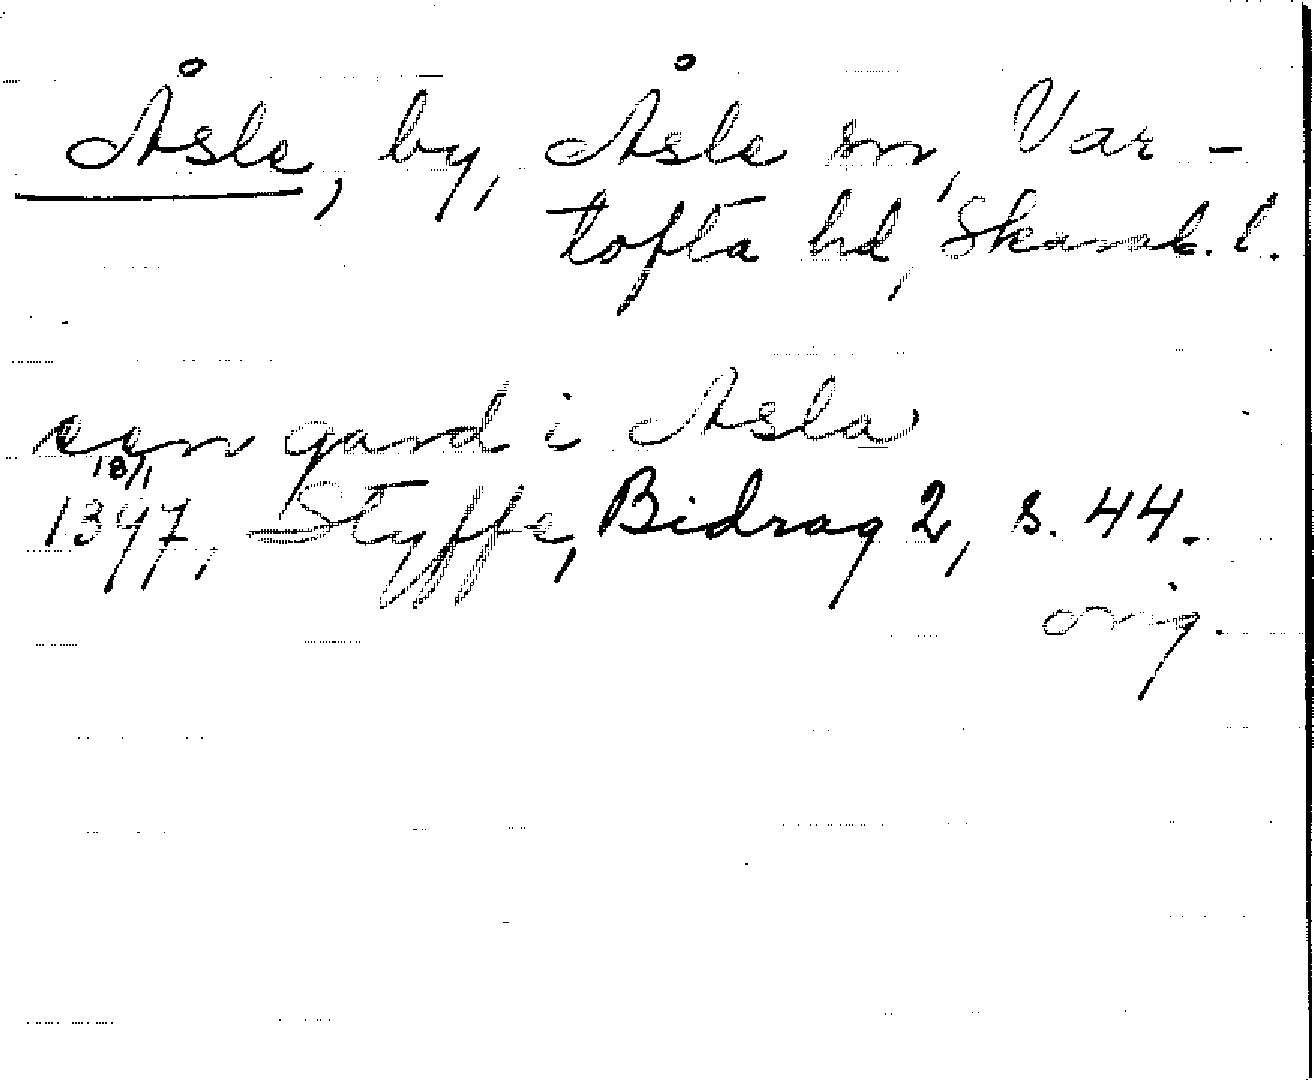 Åsle, by, Åsle sn, Var-
tofta hd, Skarab. l.
een gard i Asla
18/1
1397, Styffe, Bidrag 2, s. 44.
orig.